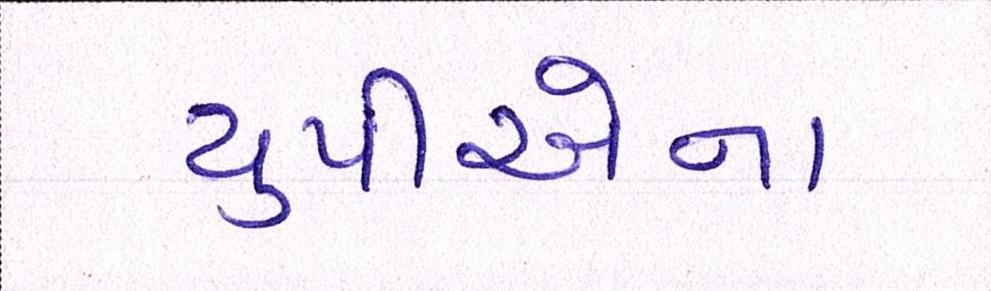 યુપીએના